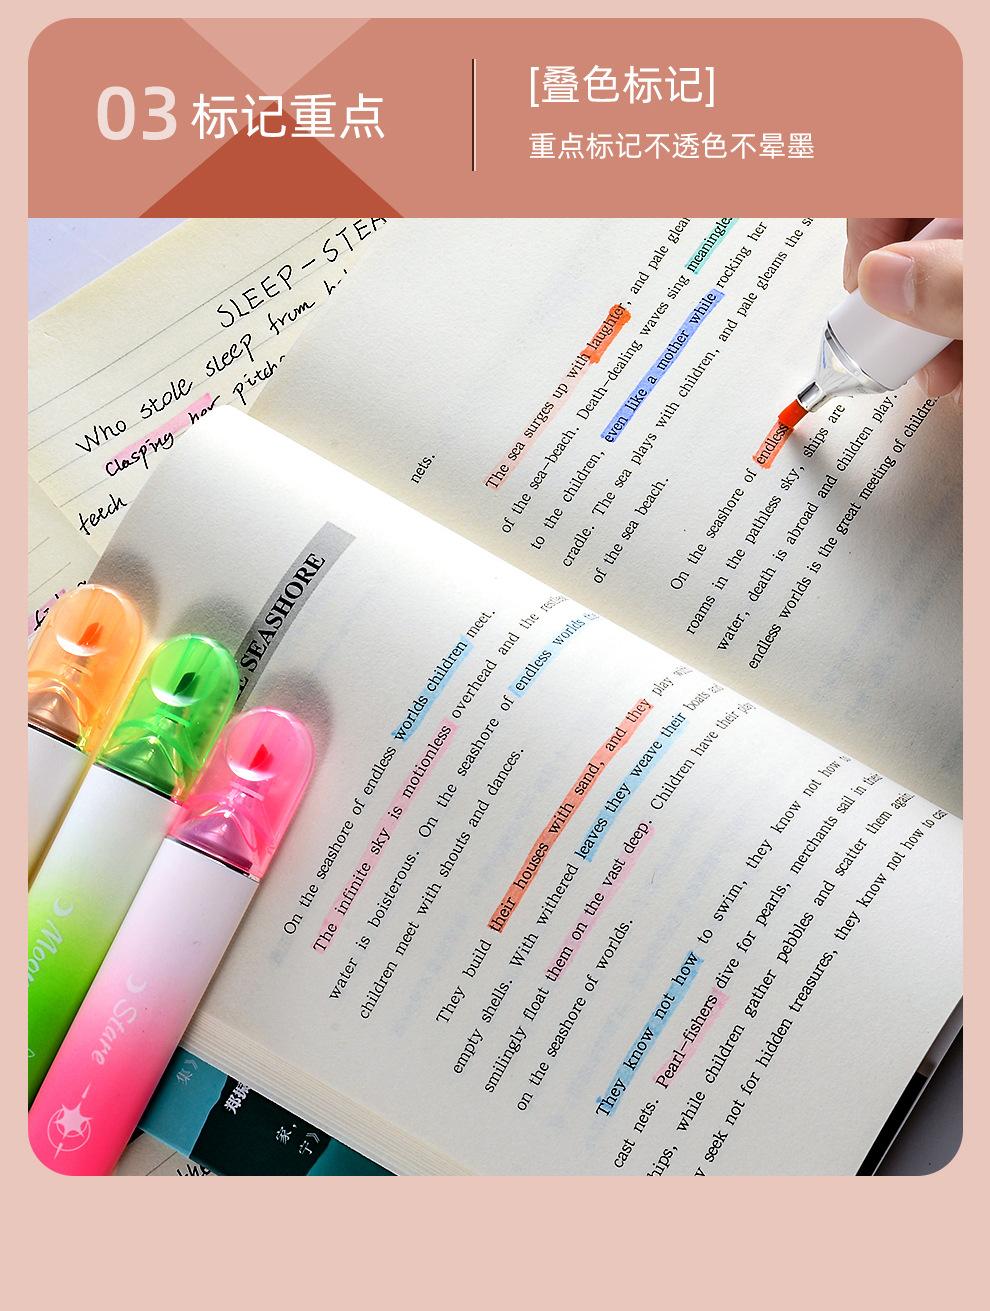 03 标记重点
[叠色标记]
重点标记不透色不晕墨
SLEEP-STEA
Who stole sleep from
Clasping her pitch
teeth
nets.
The sea surges up with laughter, and pale
of the sea-beach. Death-dealing waves sing meaningles
to the children, even like a mother while rocking her
cradle. The sea plays with children, and pale gleams the
of the sea beach.
On the seashore of endless
roams in the pathless sky, ships are
water, death is abroad and children play.
endless worlds is the great meeting of children.
SEASHORE
On the seashore of endless worlds children meet.
The infinite sky is motionless overhead and the
water is boisterous. On the seashore of endless worlds
children meet with shouts and dances.
They build their houses with sand, and they play
empty shells. With withered leaves they weave their boats and
smilingly float them on the vast deep. Children have their play
on the seashore of worlds.
They know not how to swim, they know not how to
cast nets. Pearl-fishers dive for pearls, merchants sail in
hips, while children gather pebbles and scatter them again.
seek not for hidden treasures, they know not how to
Stare